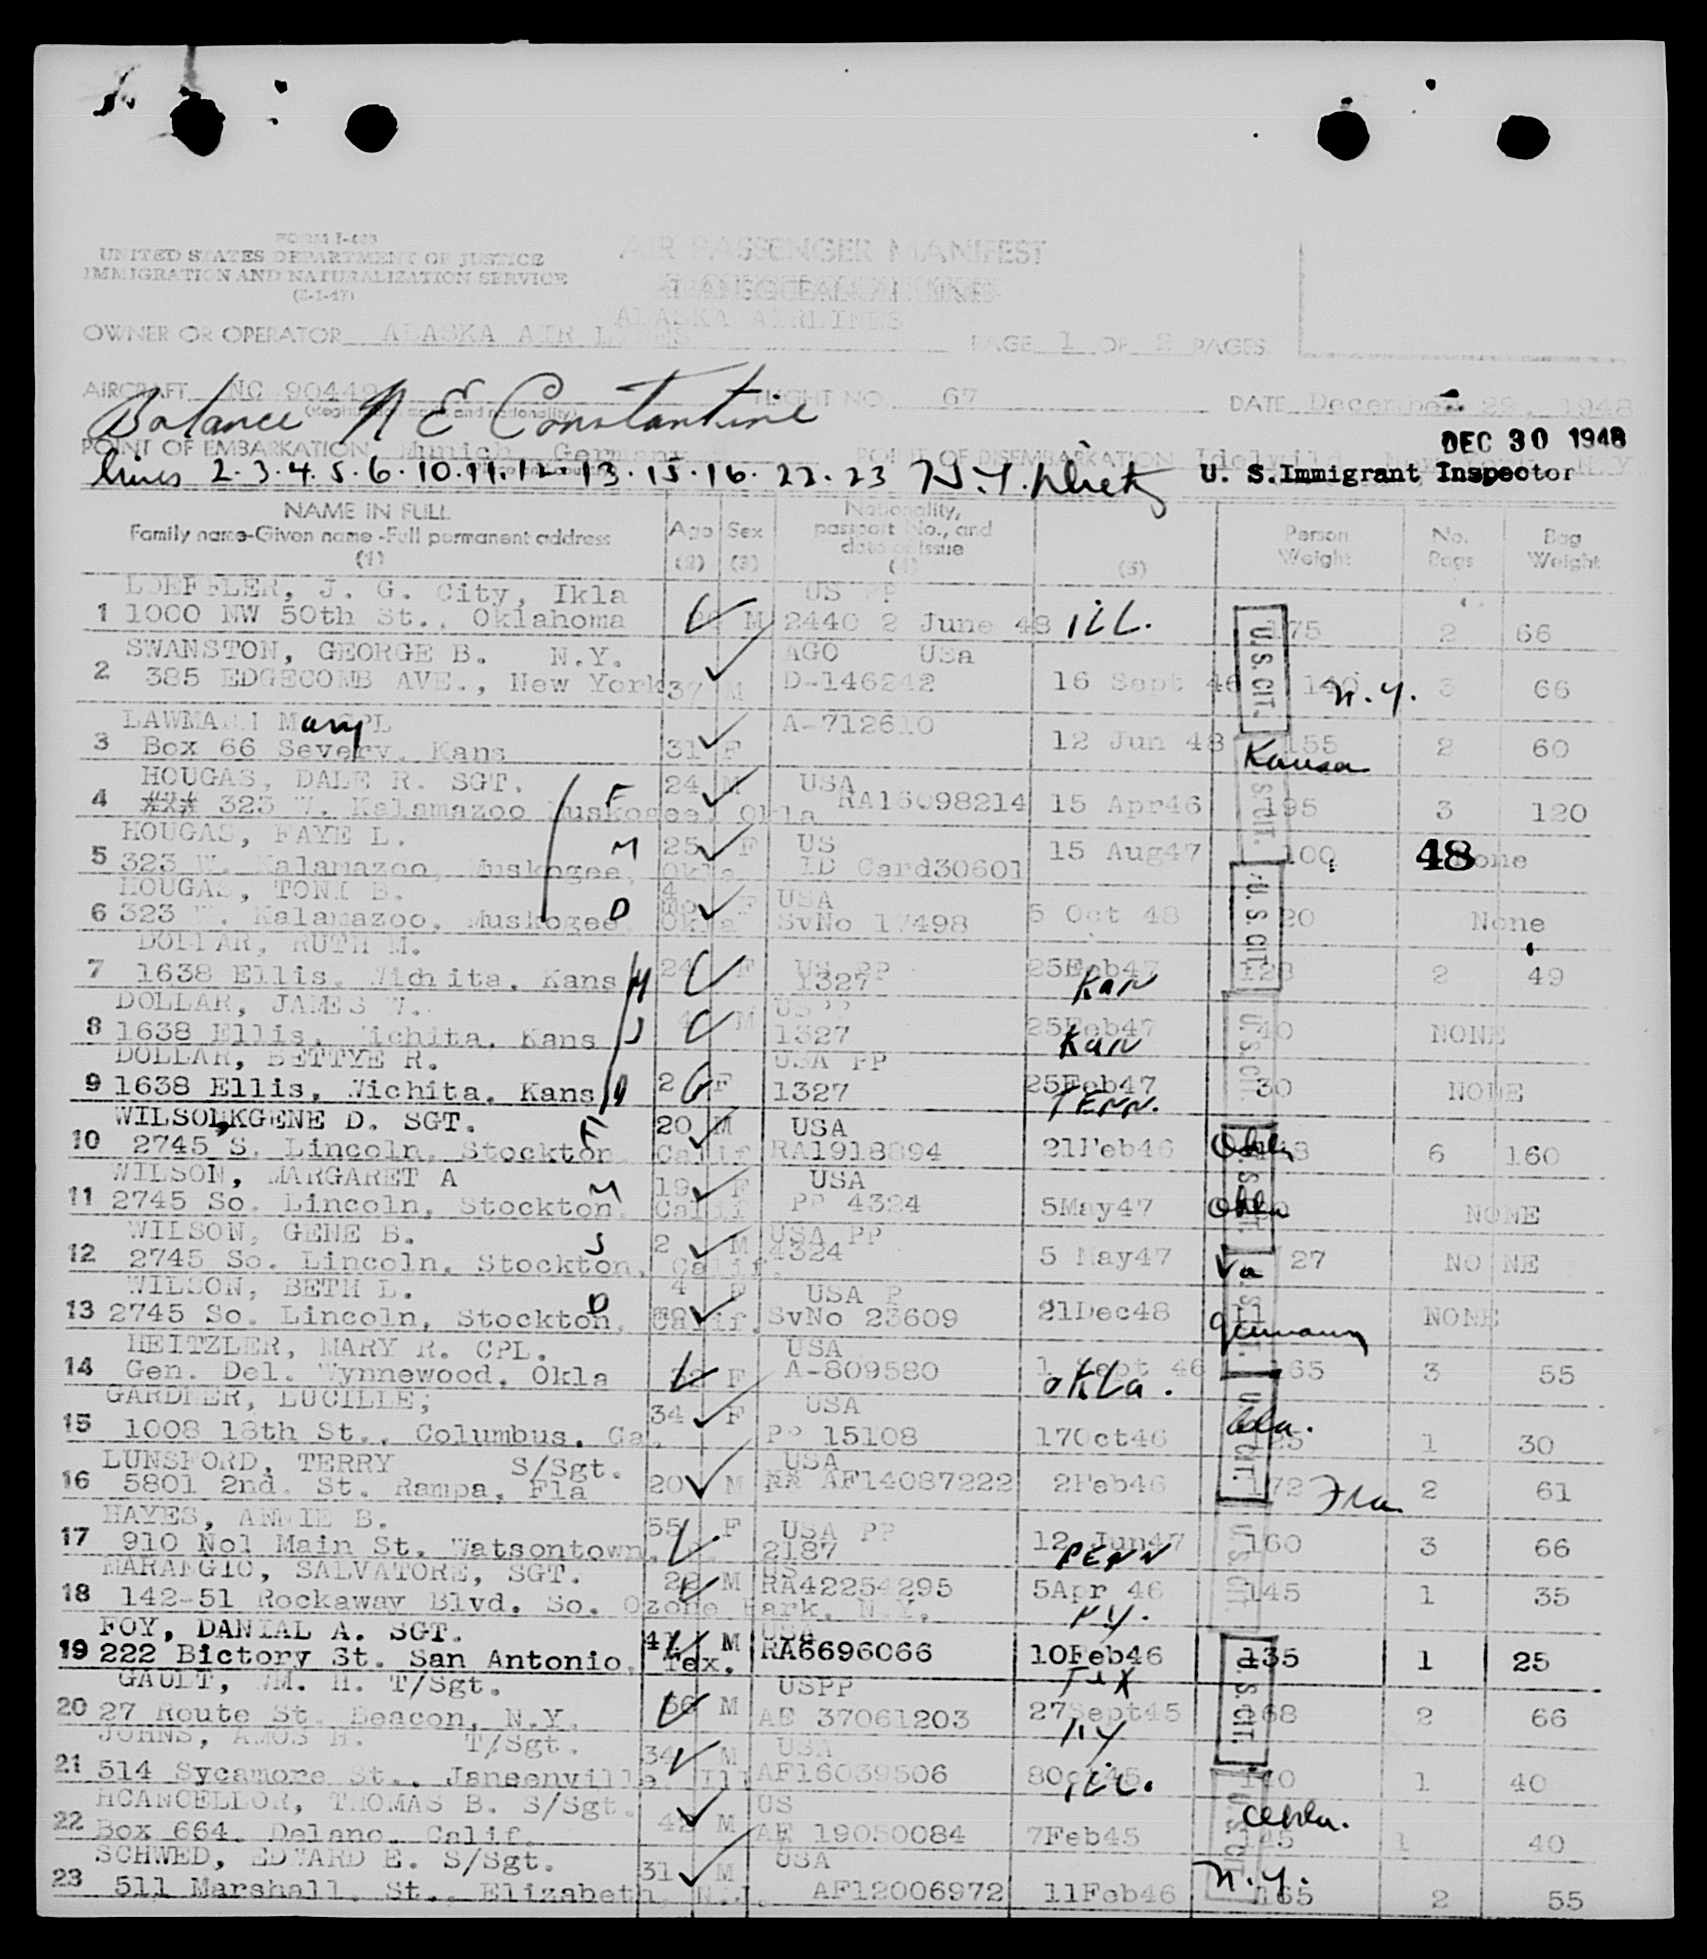 FORM I-466
UNITED STATES DEPARTMENT OF JUSTICE
IMMIGRATION AND NATURALIZATION SERVICE
AIR PASSENGER MANIFEST
ALASKA AIRLINES
OWNER OR OPERATOR ALASKA AIR LINES PAGE 1 OF 2 PAGES
AIRCRAFT NC 90449 FLIGHT NO. 67 DATE December 29, 1948
Balance N E Constantine
POINT OF EMBARKATION Munich, Germany POINT OF DISEMBARKATION Idelwild, New York
DEC 30 1948
lines 2.3.4.5.6.10.11.12.13.15.16.22.23 U. S. Immigrant Inspector
NAME IN FULL
Family name-Given name-Full permanent address
(1)
Age
(2)
Sex
(3)
Nationality, passport No., and date of issue
(4)
(5)
Person Weight
No. Bags
Bag Weight
LOEFFLER, J. G. City, Ikla US PP
1 1000 NW 50th St., Oklahoma M 2440 2 June 48 ILL. 175 2 66
SWANSTON, GEORGE B. N.Y. AGO USa
2 385 EDGECOMB AVE., New York 37 M D-146242 16 Sept 46 N.Y. 3 66
LAWMAN Mary CPL A-712610
3 Box 66 Severy, Kans 31 F 12 Jun 48 155 Kansa 2 60
HOUGAS, DALE R. SGT. F 24 M USA
4 323 W. Kalamazoo Muskogee, Okla RA16098214 15 Apr46 195 3 120
HOUGAS, FAYE L. M 25 F US
5 323 W. Kalamazoo, Muskogee, Okla ID Card30601 15 Aug47 100 48 None
HOUGAS, TONI B. D 4 mo F USA
6 323 W. Kalamazoo, Muskogee, Okla SvNo 17498 5 Oct 48 20 None
DOLLAR, RUTH M.
7 1638 Ellis, Wichita, Kans M 24 F US PP 1327 25Feb47 KAN 128 2 49
DOLLAR, JAMES W. US PP
8 1638 Ellis, Wichita, Kans S 4 M 1327 25Feb47 KAN 40 NONE
DOLLAR, BETTYE R. USA PP
9 1638 Ellis, Wichita, Kans D 2 F 1327 25Feb47 TENN. 30 NONE
WILSON, KGENE D. SGT. F 20 M USA
10 2745 S. Lincoln, Stockton, Calif 21Feb46 6 160
WILSON, MARGARET A M 19 F USA
11 2745 So. Lincoln, Stockton, Calif PP 4324 5May47 NONE
WILSON, GENE B. S 2 M USA PP
12 2745 So. Lincoln, Stockton, Calif. 4324 5 May47 Va 27 NO NE
WILSON, BETH L. D 4 F USA P
13 2745 So. Lincoln, Stockton, Calif. SvNo 23609 21Dec48 Germany NONE
HEITZLER, MARY R. CPL. USA
14 Gen. Del. Wynnewood, Okla F A-809580 1 Sept 46 OKLA. 165 3 55
GARDNER, LUCILLE; 34 F USA
15 1008 18th St., Columbus, Ga. PP 15108 17Oct46 1 30
LUNSFORD, TERRY S/Sgt. USA
16 5801 2nd. St. Rampa, Fla 20 M AF14087222 2Feb46 172 Fla 2 61
HAYES, ANNIE B. 55 F USA PP
17 910 No1 Main St. Watsontown, 2187 12 Jun47 PENN 160 3 66
MARANGIO, SALVATORE, SGT. 22 M US
18 142-51 Rockaway Blvd. So. Ozone Park, N.Y. RA42254295 5Apr 46 N.Y. 145 1 35
FOY, DANIAL A. SGT. 41 M USA
19 222 Bictory St. San Antonio, Tex. RA6696066 10Feb46 TEX 135 1 25
GAULT, WM. H. T/Sgt. USPP
20 27 Route St. Beacon, N.Y. 36 M AE 37061203 27Sept45 NY 168 2 66
JOHNS, AMOS H. T/Sgt. 34 M USA
21 514 Sycamore St., Janeenville, Ill AF16039506 8Oct45 ILL. 1 40
HCANCELLOR, THOMAS B. S/Sgt. M US
22 Box 664, Delano, Calif. AF 19050084 7Feb45 145 1 40
SCHWED, EDWARD E. S/Sgt. 31 M USA
23 511 Marshall, St., Elizabeth, N.J. AF12006972 11Feb46 N.Y. 165 2 55
U.S. CIT.